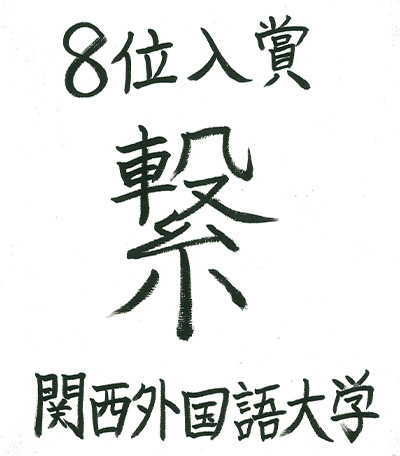 8位入賞
繋
関西外国語大学